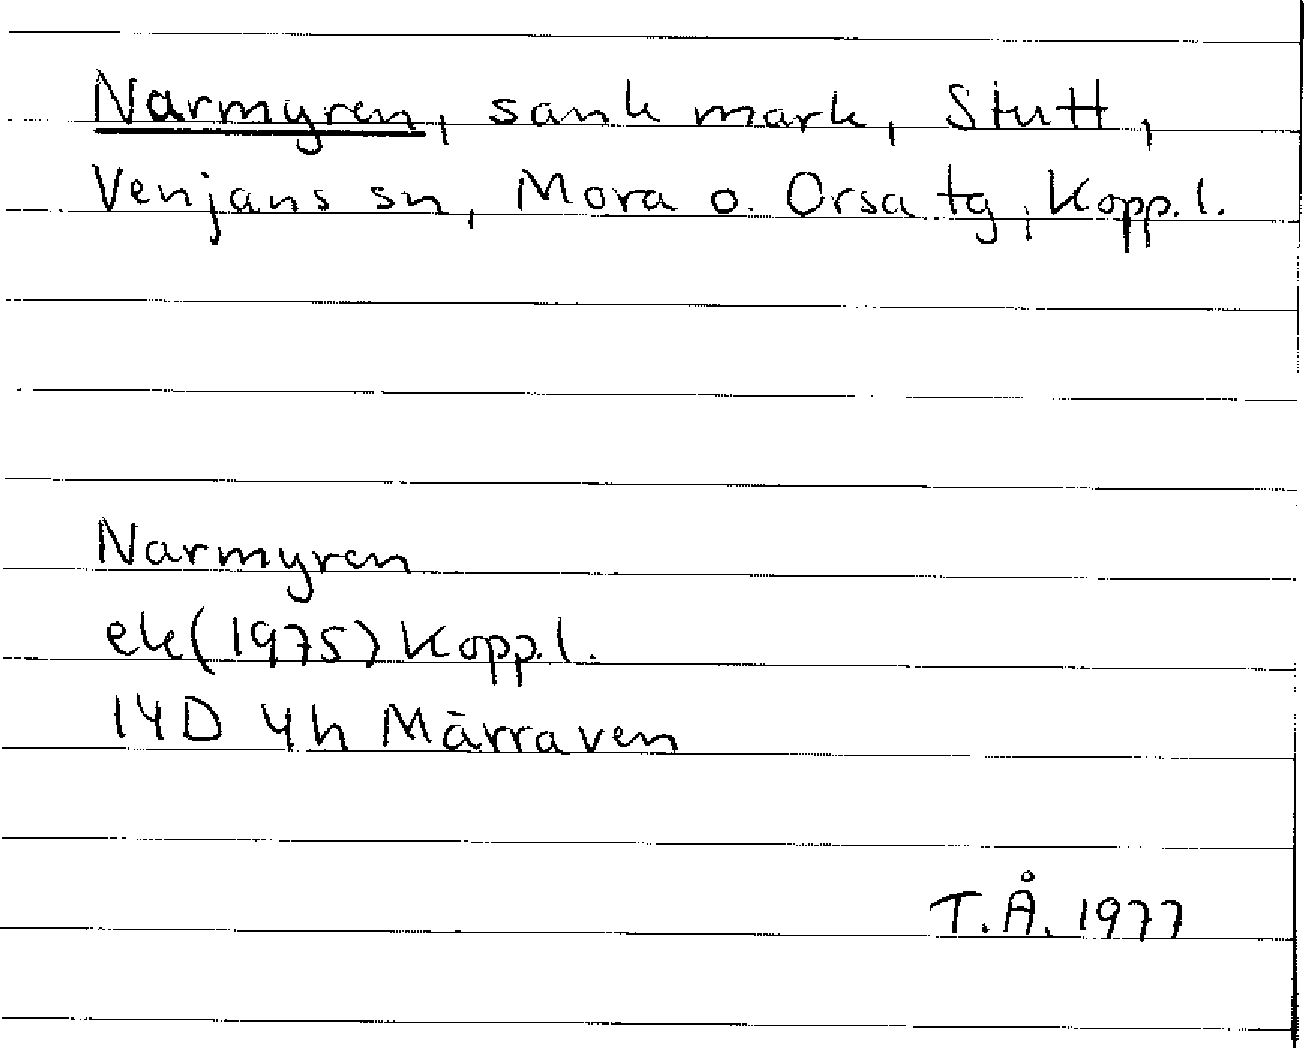 Narmyren, sank mark, Stutt,
Venjans sn, Mora o. Orsa tg, Kopp. l.
Narmyren
ek (1975) Kopp.l.
14D 4h Märraven
T.Å. 1977